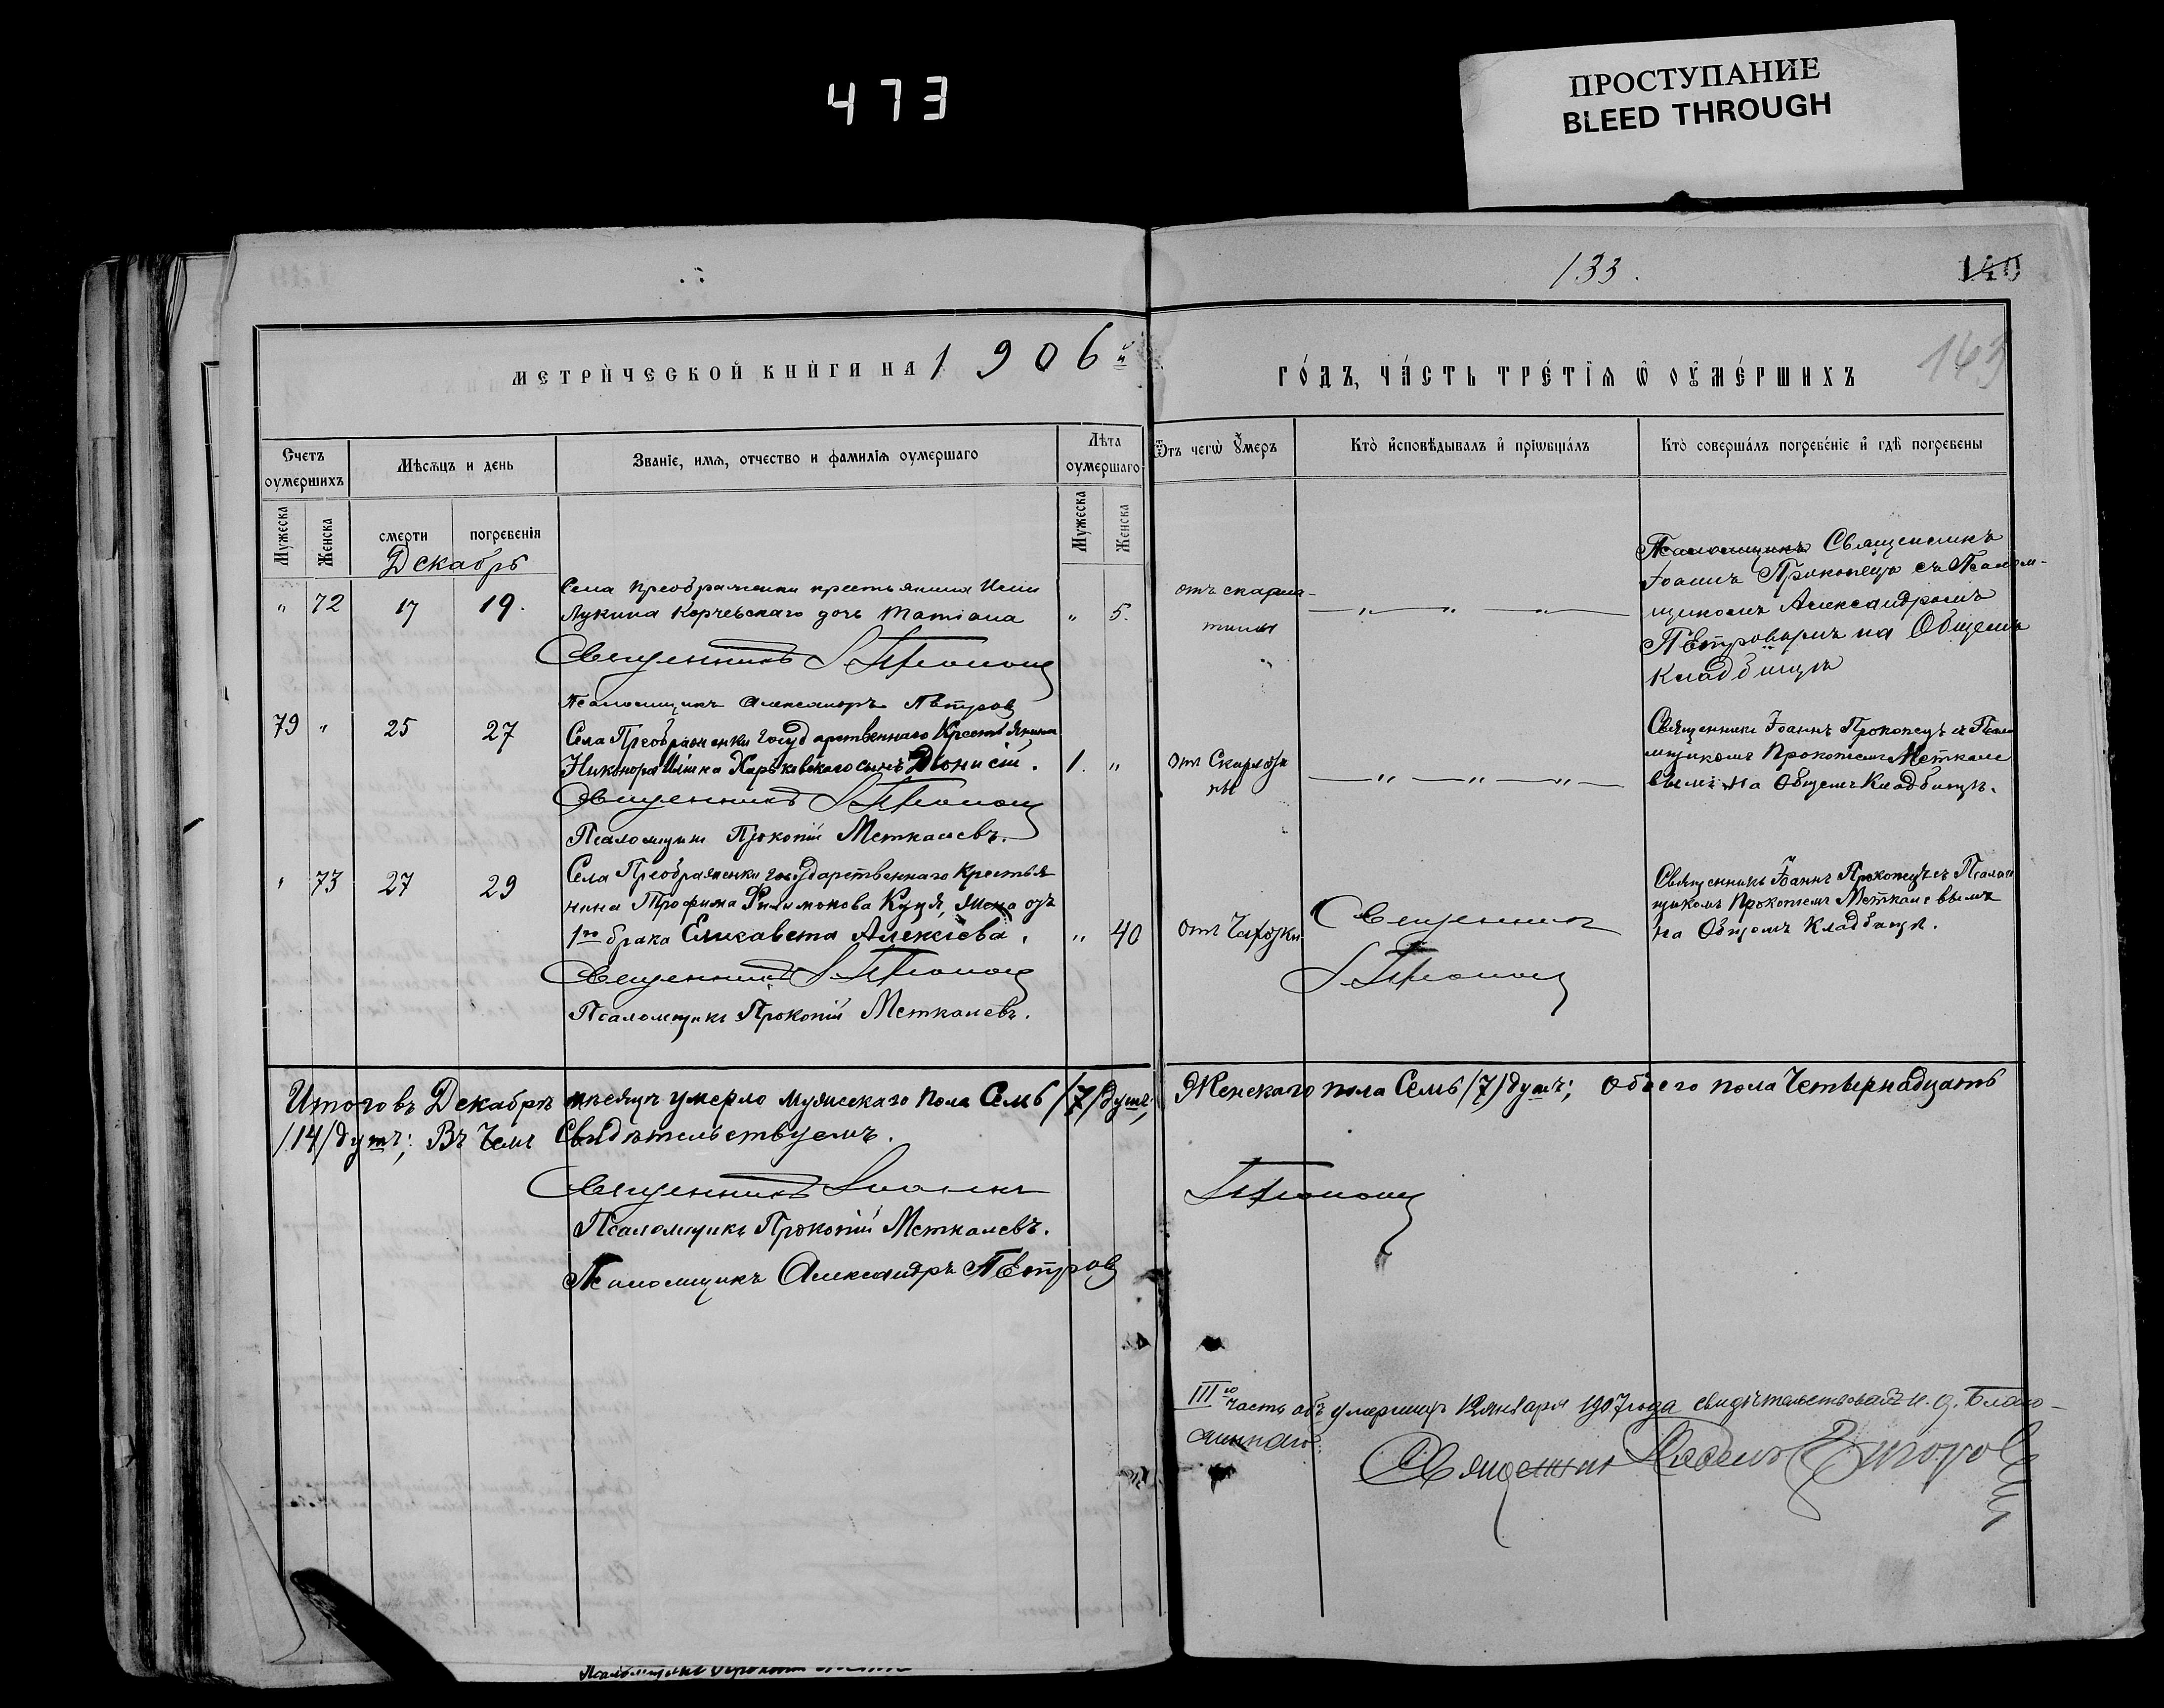 473
ПРОСТУПАНИЕ
BLEED THROUGH
133.
140
МЕТРИ́ЧЕСКОЙ КНИ́ГИ НА 1906й
ГО́ДЪ, ЧА́СТЬ ТРЕ́ТІѦ Ѿ ОУ҆МЕ́РШИХЪ
Счетъ оумершихъ
Мѣсѧцъ и день
Званіе, имѧ, отчество и фамиліѧ оумершаго
Лѣта оумершаго
Ѿтъ чегѡ̀ ᲂу҆́меръ
Кто̀ и҆сповѣ́дывалъ и҆ прїѡбща́лъ
Кто̀ соверша́лъ погребе́ніе и҆ гдѣ̀ погребены
Мужеска
Женска
смерти
погребенія
Мужеска
Женска
Декабрь
" 72 17 19.
Села Преображенки крестьянина Иліи
Лукина Корчевскаго дочь Татіана
" 5.
отъ скарла-
тины
Священникъ І. Прокопец
Псаломщикъ Александръ Пѣтров
Псаломщикъ Священникъ
Іоаннъ Прокопецъ съ Псалом-
щикомъ Александромъ
Пѣтровымъ на Общемъ
Кладбищѣ
79 " 25 27
Села Преображенки Государственнаго Крестьянина
Никонора Ильина Харьковскаго сынъ Діонисій.
1. "
Отъ Скарлати
ны
Священникъ І. Прокопец
Псаломщикъ Прокопій Меткалевъ.
Священникъ Іоаннъ Прокопецъ съ Псало
мщикомъ Прокопіемъ Меткале
вымъ на Общемъ Кладбищѣ.
" 73 27 29
Села Преображенки Государственнаго Крестья
нина Трофима Филимонова Куця, жена отъ
1го брака Елисавета Алексіева.
" 40
Отъ Чахотки
Священник
І. Прокопец
Священникъ І. Прокопец
Псаломщикъ Прокопій Меткалевъ.
Священникъ Іоаннъ Прокопецъ съ Псалом
щикомъ Прокопіемъ Меткалевымъ
на Общемъ Кладбищѣ.
Итого въ Декабрѣ мѣсяцѣ умерло Мужескаго пола Семь /7/ душъ; Женскаго пола Семь /7/ душъ; Обоего пола Четырнадцать
/14/ душъ; Въ Чемъ Свидѣтельствуемъ.
Священникъ Іоаннъ Прокопец
Псаломщикъ Прокопій Меткалевъ.
Псаломщикъ Александръ Пѣтров
III ю часть объ умершихъ 12 января 1907 года свидѣтельствовалъ и. д. Благо-
чиннаго:
Священник Павелъ